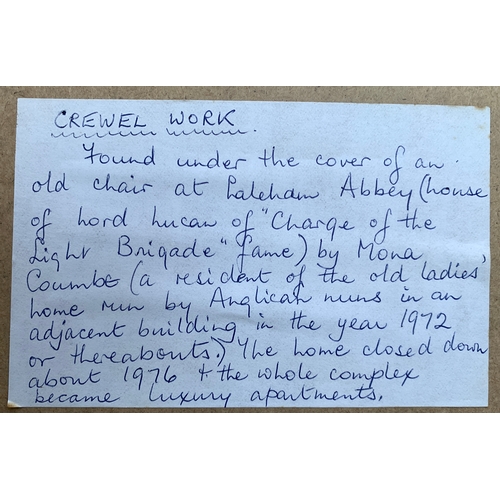 CREWEL WORK.
Found under the cover of an
old chair at Laleham Abbey (house
of Lord Lucan of "Charge of the
Light Brigade" fame) by Mona
Coumbe (a resident of the old ladies'
home run by Anglican nuns in an
adjacent building in the year 1972
or thereabouts.) The home closed down
about 1976 + the whole complex
became luxury apartments.